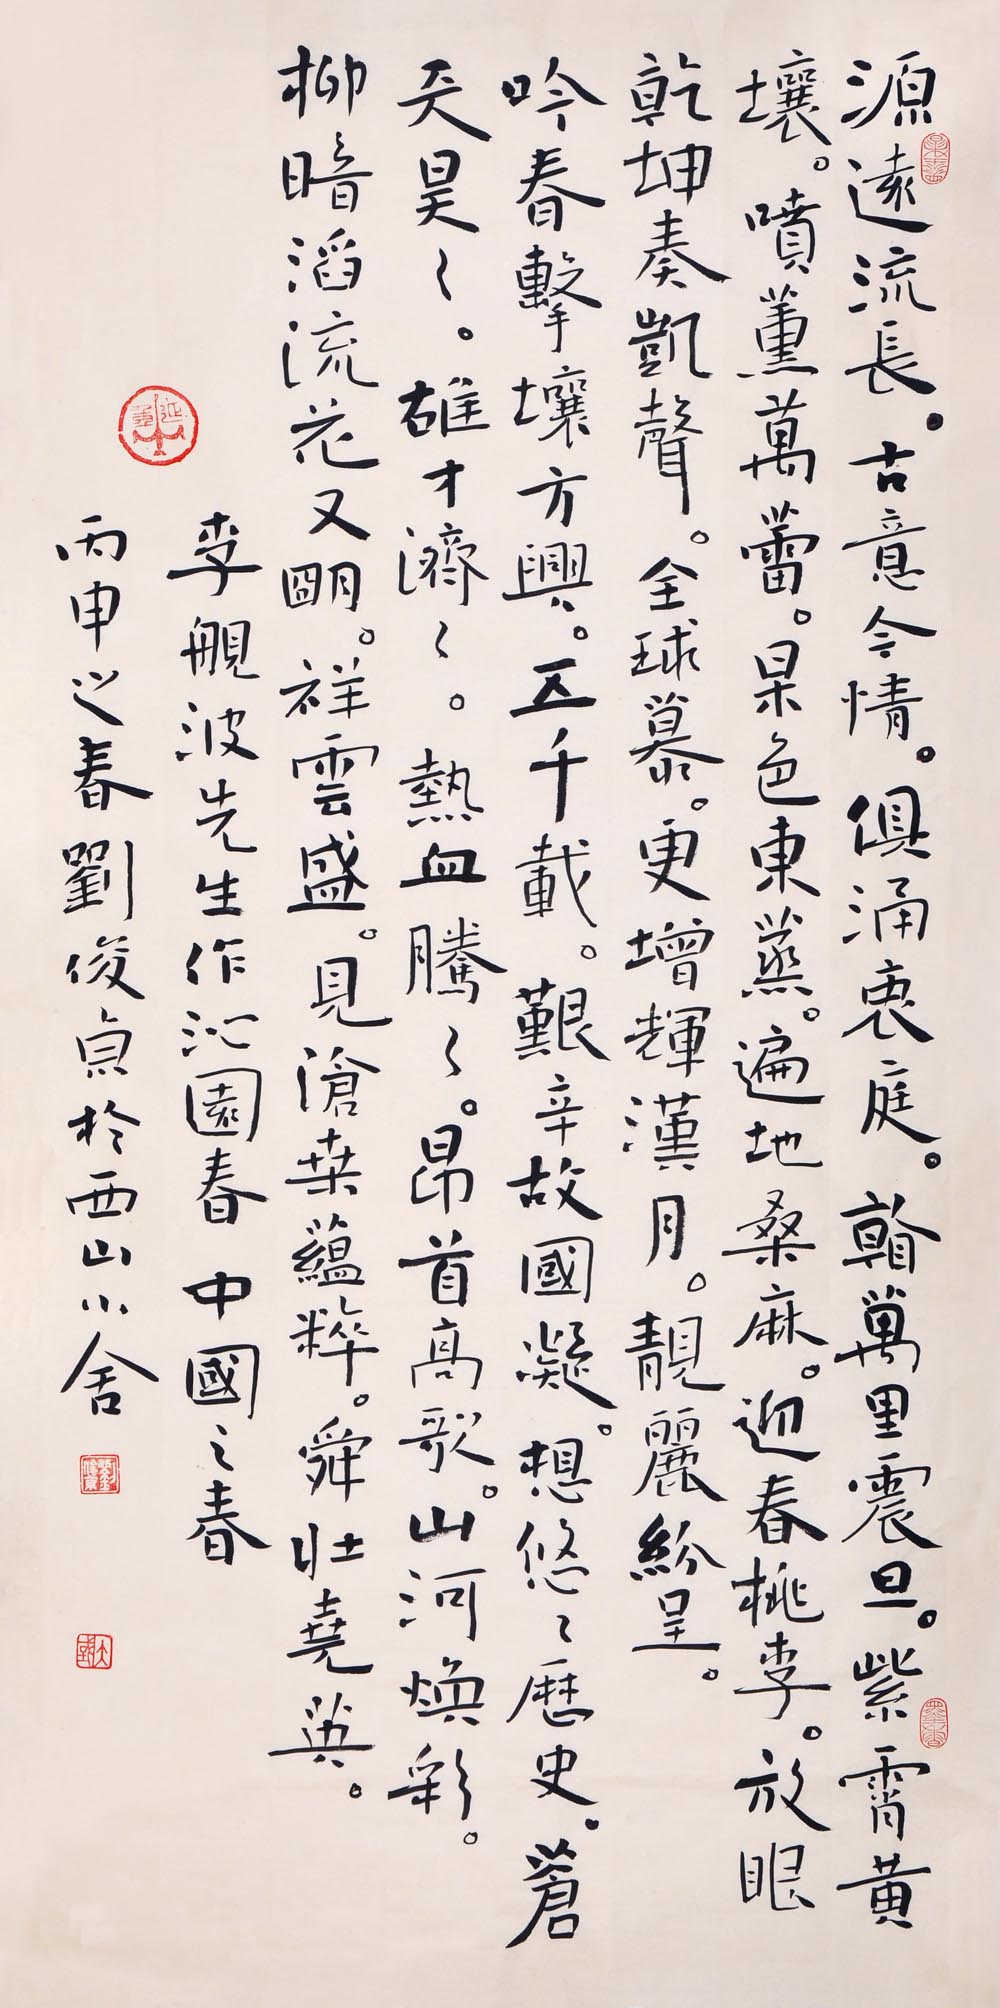 源遠流長。古意今情。俱涌衷庭。韾萬里震旦。紫霄黄
壤。噴薰萬蕾。杲色東蒸。遍地桑麻。迎春桃李。放眼
乾坤奏凱聲。全球慕。更增輝漢月。靚麗紛呈。
吟春擊壤方興。五千載。艱辛故國凝。想悠〻歷史。蒼
天昊〻。雄才濟〻。熱血騰〻。昂首高歌。山河焕彩。
柳暗滔流花又明。祥雲盛。見滄桑蘊粹。舜壯堯英。
李觀波先生作沁園春 中國之春
丙申之春劉俊貞於西山小舍